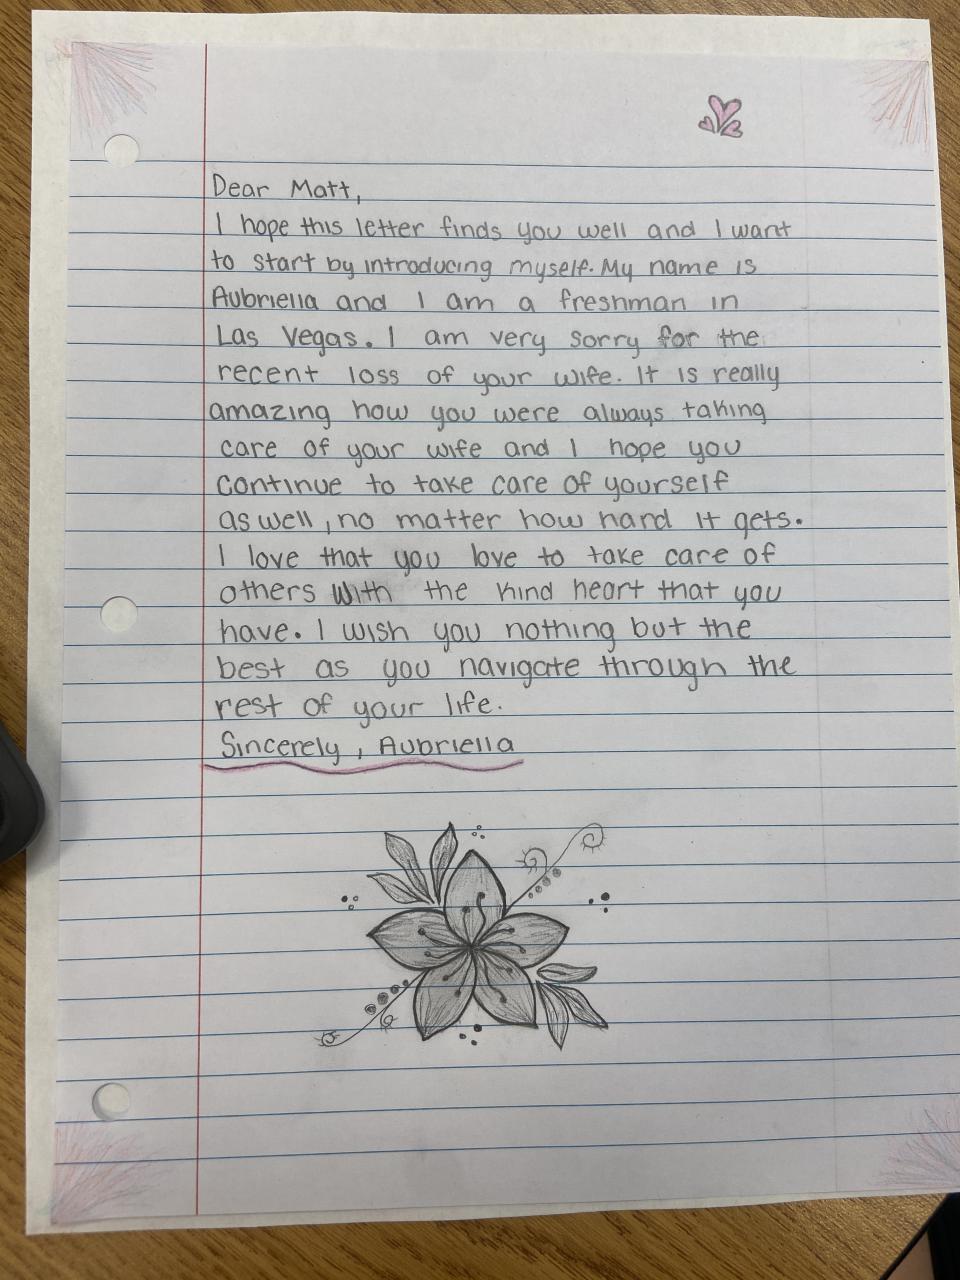 Dear Matt,
I hope this letter finds you well and I want
to start by introducing myself. My name is
Aubriella and I am a freshman in
Las Vegas. I am very sorry for the
recent loss of your wife. It is really
amazing how you were always taking
care of your wife and I hope you
continue to take care of yourself
as well, no matter how hard it gets.
I love that you love to take care of
others with the kind heart that you
have. I wish you nothing but the
best as you navigate through the
rest of your life.
Sincerely, Aubriella